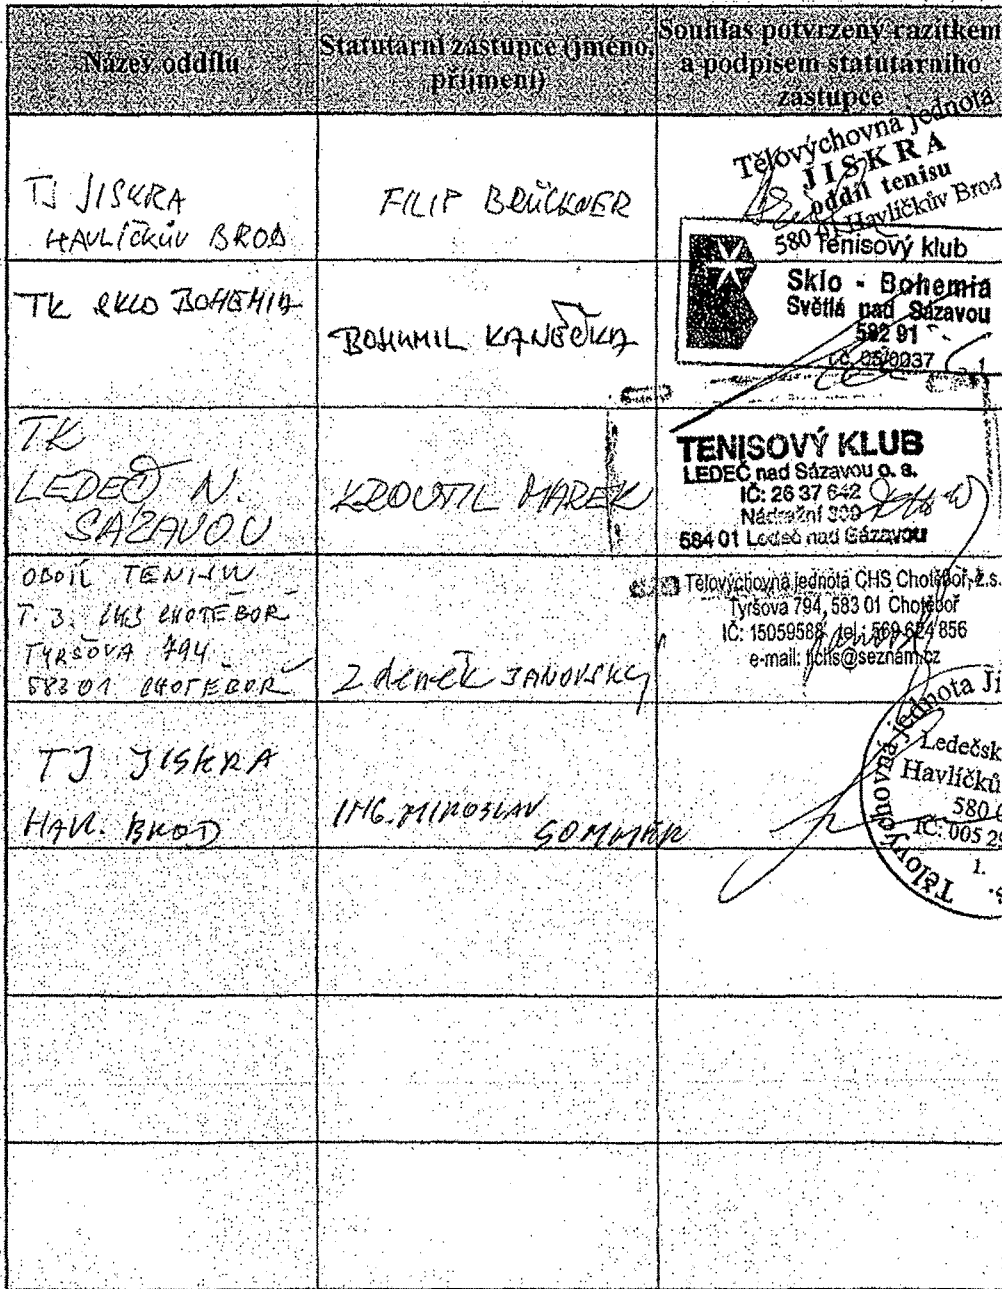 Název oddílu
Statutární zástupce (jméno,
příjmení)
Souhlas potvrzený razítkem
a podpisem statutárního
zástupce
TJ JISKRA
HAVLÍČKŮV BROD
FILIP BRÜCKNER
Tělovýchovná jednota
JISKRA
oddíl tenisu
580 01 Havlíčkův Brod
TK SKLO BOHEMIA
BOHUMIL KANĚČKA
Tenisový klub
Sklo - Bohemia
Světlá nad Sázavou
582 91
r.č. 05/0037
TK
LEDEČ N.
SÁZAVOU
KROUTIL MAREK
TENISOVÝ KLUB
LEDEČ nad Sázavou o. s.
IČ: 26 37 642
Nádražní 309
584 01 Ledeč nad Sázavou
ODDÍL TENISU
T. J. CHS CHOTĚBOŘ
TYRŠOVA 794
583 01 CHOTĚBOŘ
Zdeněk JANOVSKÝ
Tělovýchovná jednota CHS Chotěboř, z.s.
Tyršova 794, 583 01 Chotěboř
IČ: 15059588, tel.: 569 624 856
e-mail: tjchs@seznam.cz
TJ JISKRA
HAVL. BROD
ING. MIROSLAV
SOMMER
Tělovýchovná jednota Ji
Ledečsk
Havlíčků
580 0
IČ: 005 29
1.